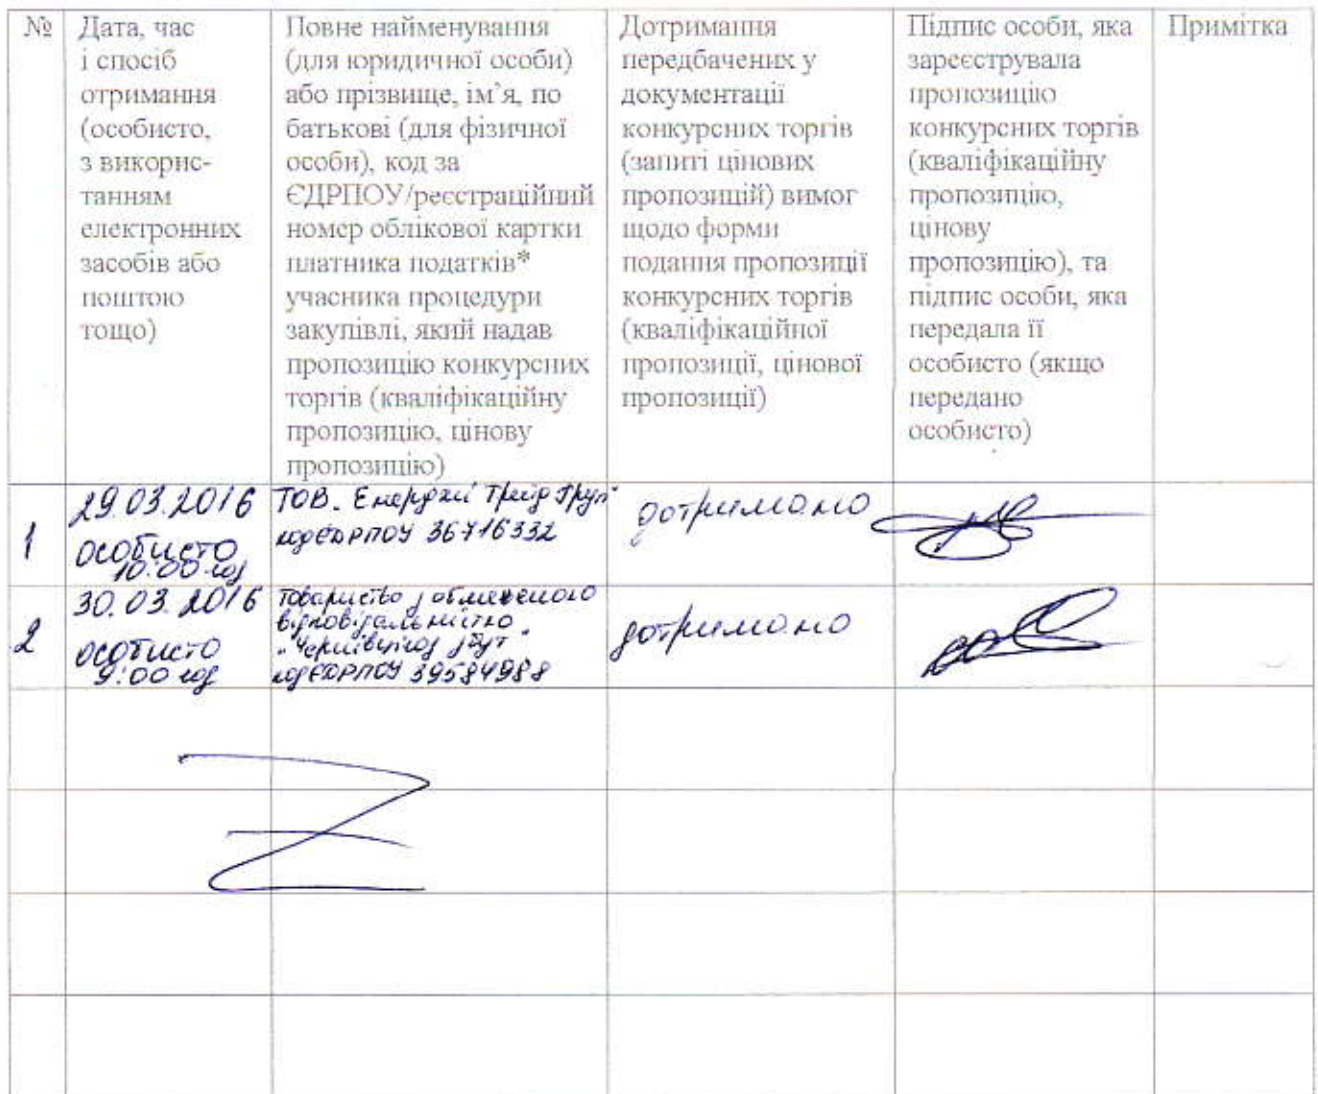 №
Дата, час
і спосіб
отримання
(особисто,
з викорис-
танням
електронних
засобів або
поштою
тощо)
Повне найменування
(для юридичної особи)
або прізвище, ім’я, по
батькові (для фізичної
особи), код за
ЄДРПОУ/реєстраційний
номер облікової картки
платника податків*
учасника процедури
закупівлі, який надав
пропозицію конкурсних
торгів (кваліфікаційну
пропозицію, цінову
пропозицію)
Дотримання
передбачених у
документації
конкурсних торгів
(запиті цінових
пропозицій) вимог
щодо форми
подання пропозиції
конкурсних торгів
(кваліфікаційної
пропозиції, цінової
пропозиції)
Підпис особи, яка
зареєструвала
пропозицію
конкурсних торгів
(кваліфікаційну
пропозицію,
цінову
пропозицію), та
підпис особи, яка
передала її
особисто (якщо
передано
особисто)
Примітка
1
29.03.2016
особисто
10:00 год
ТОВ "Енерджи Трейд Груп"
код ЄДРПОУ 36716332
дотримано
2
30.03.2016
особисто
9:00 год
Товариство з обмеженою
відповідальністю
"Чернівцігаз Збут"
код ЄДРПОУ 39584988
дотримано